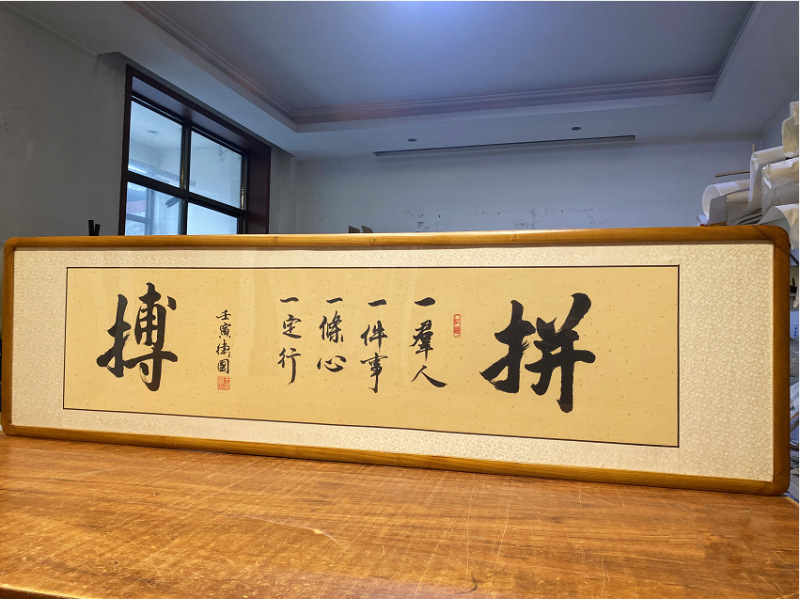 拼
一羣人
一件事
一條心
一定行
壬寅衛國
搏